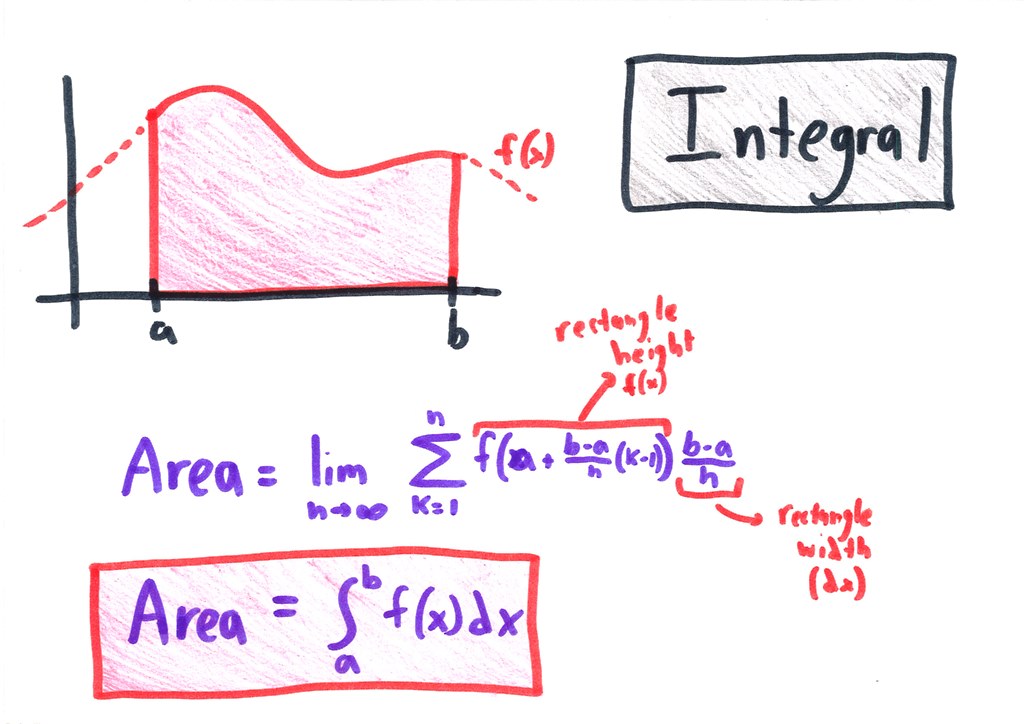 Integral
f(x)
a
b
rectangle
height
f(x)
Area = lim n→∞ n Σ k=1 f(a + b-a/n (k-1)) b-a/n
rectangle
width
(dx)
Area = ∫ b a f(x) dx